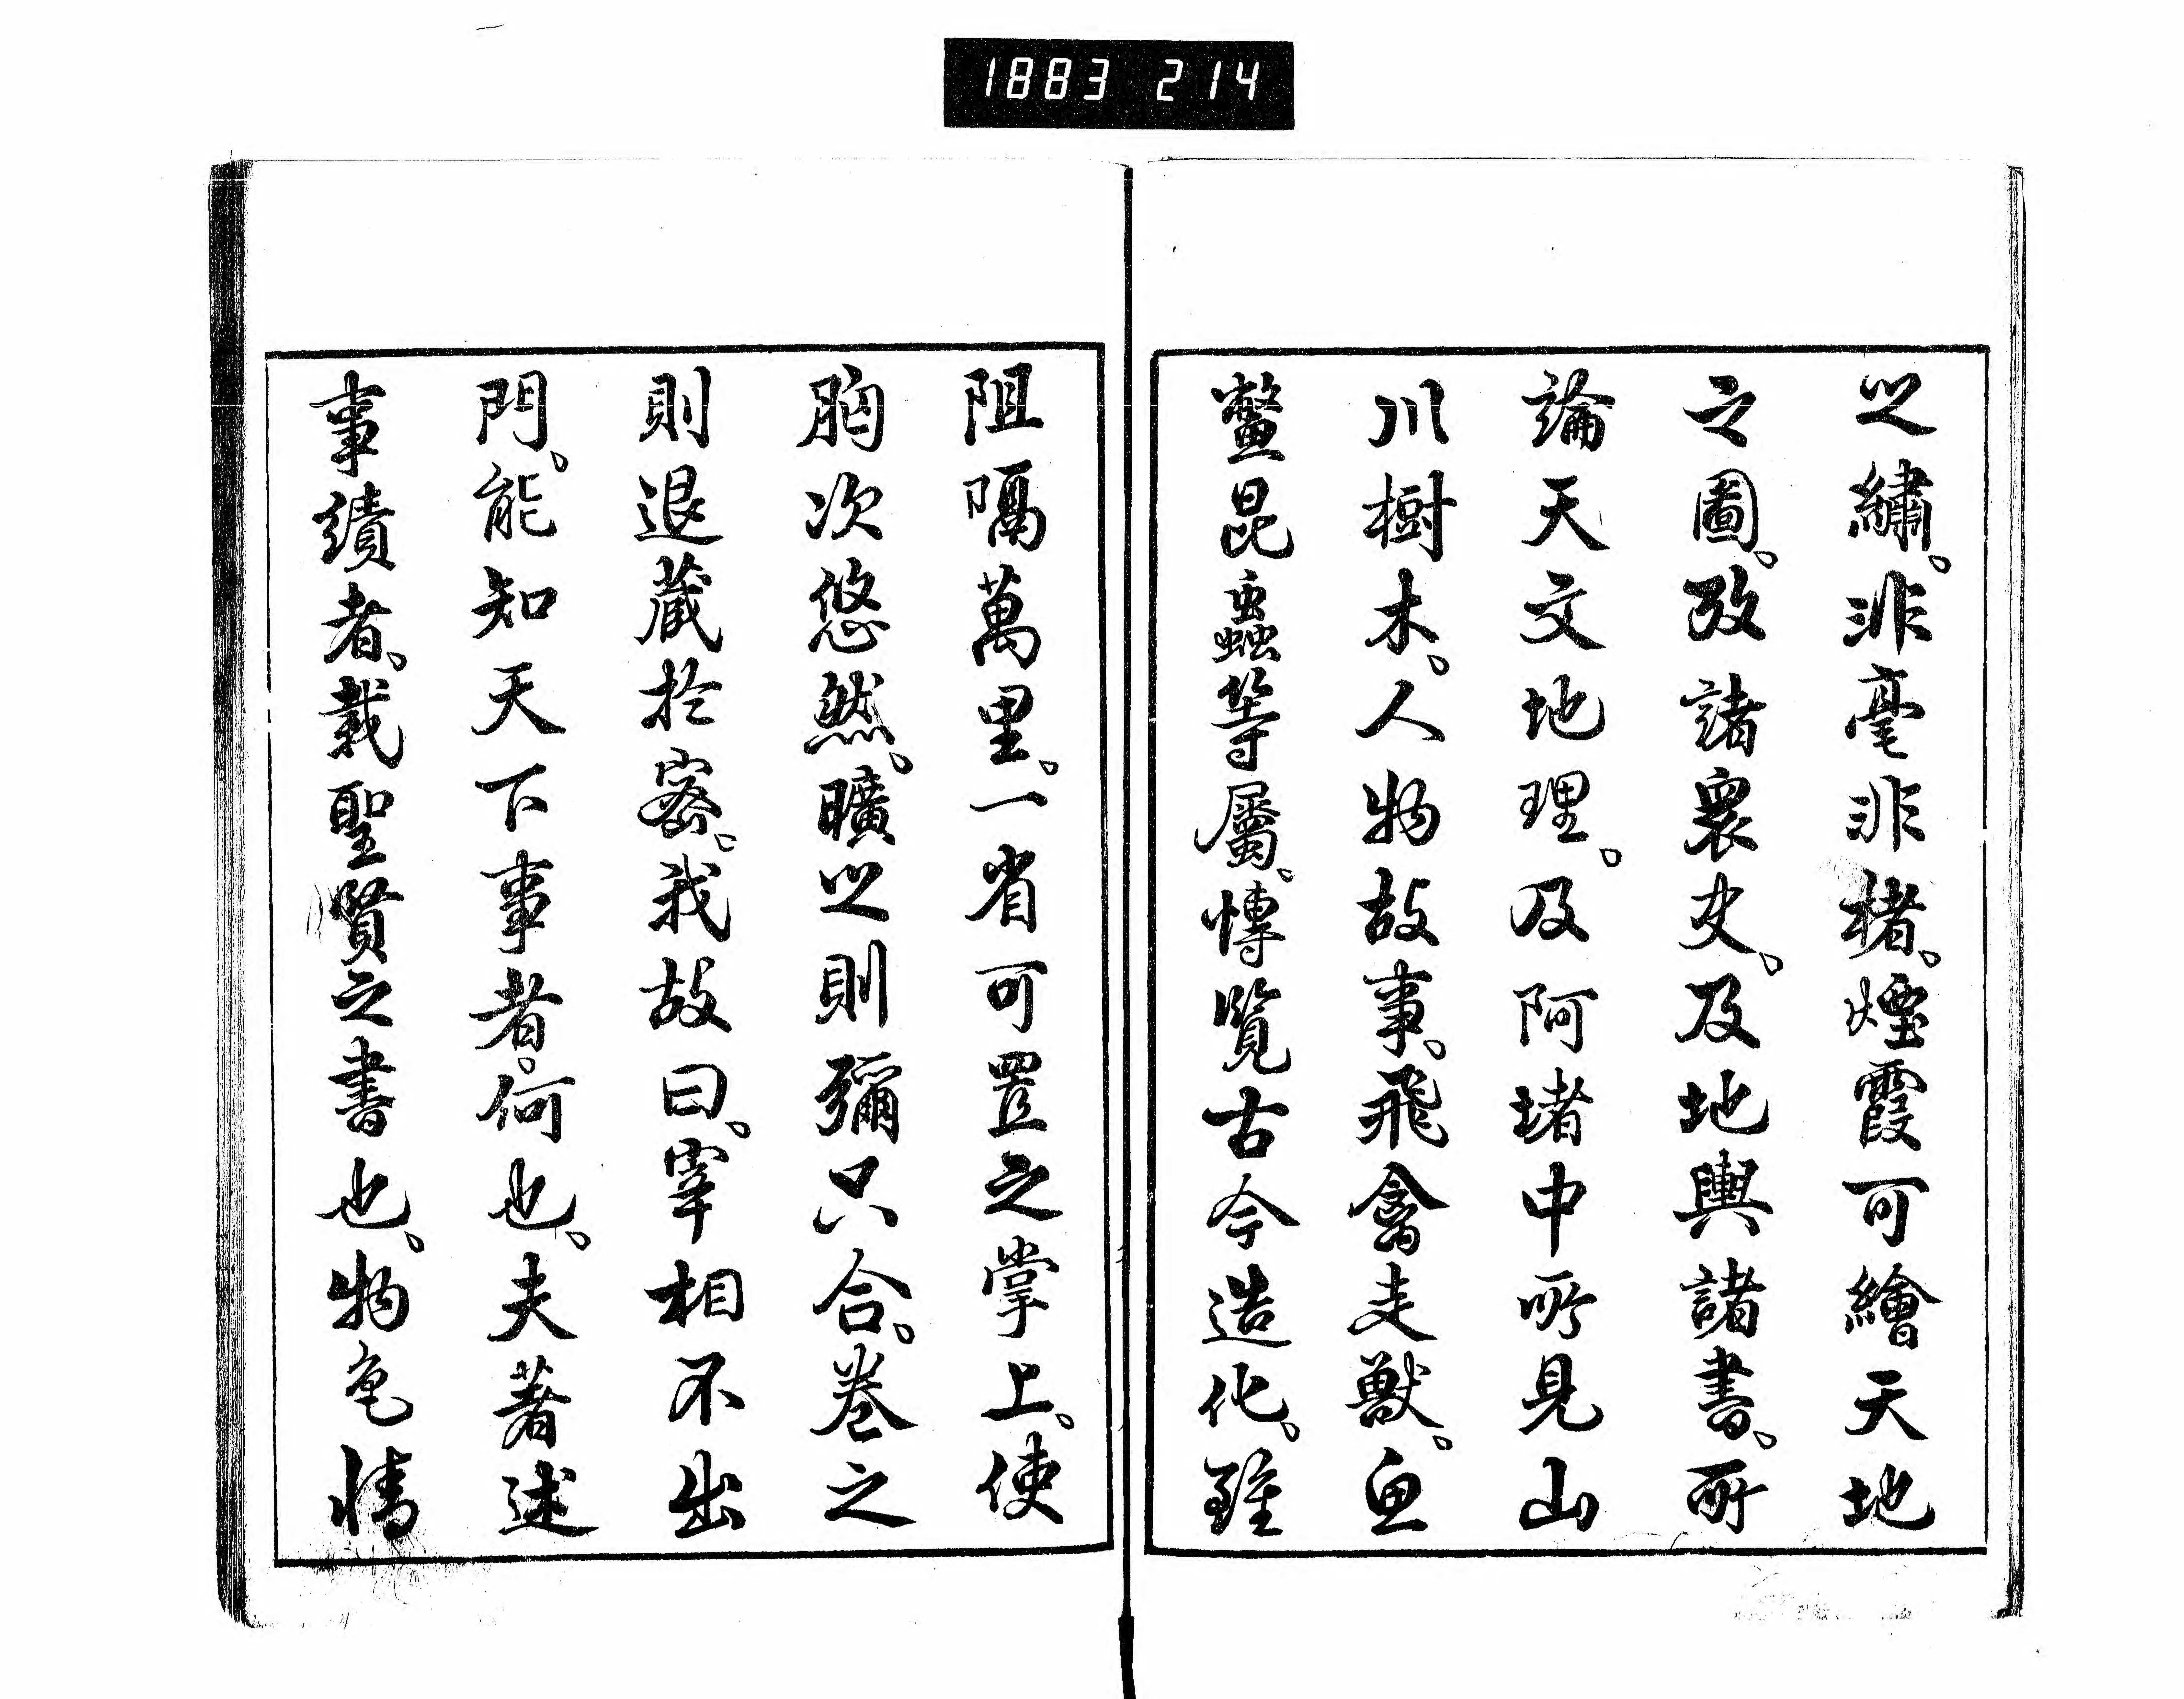 1883 214
之繡。非毫非楮。煙霞可繪天地
之圖。攷諸衆史。及地輿諸書。所
論天文地理。及阿堵中所見山
川樹木。人物故事。飛禽走獸。魚
鼈昆蟲等屬。慱覽古今造化。雖
阻隔萬里。一省可置之掌上。使
胸次悠然。曠之則彌只合。卷之
則退藏於密。我故曰。宰相不出
門。能知天下事者。何也。夫著述
事績者。載聖賢之書也。物色情